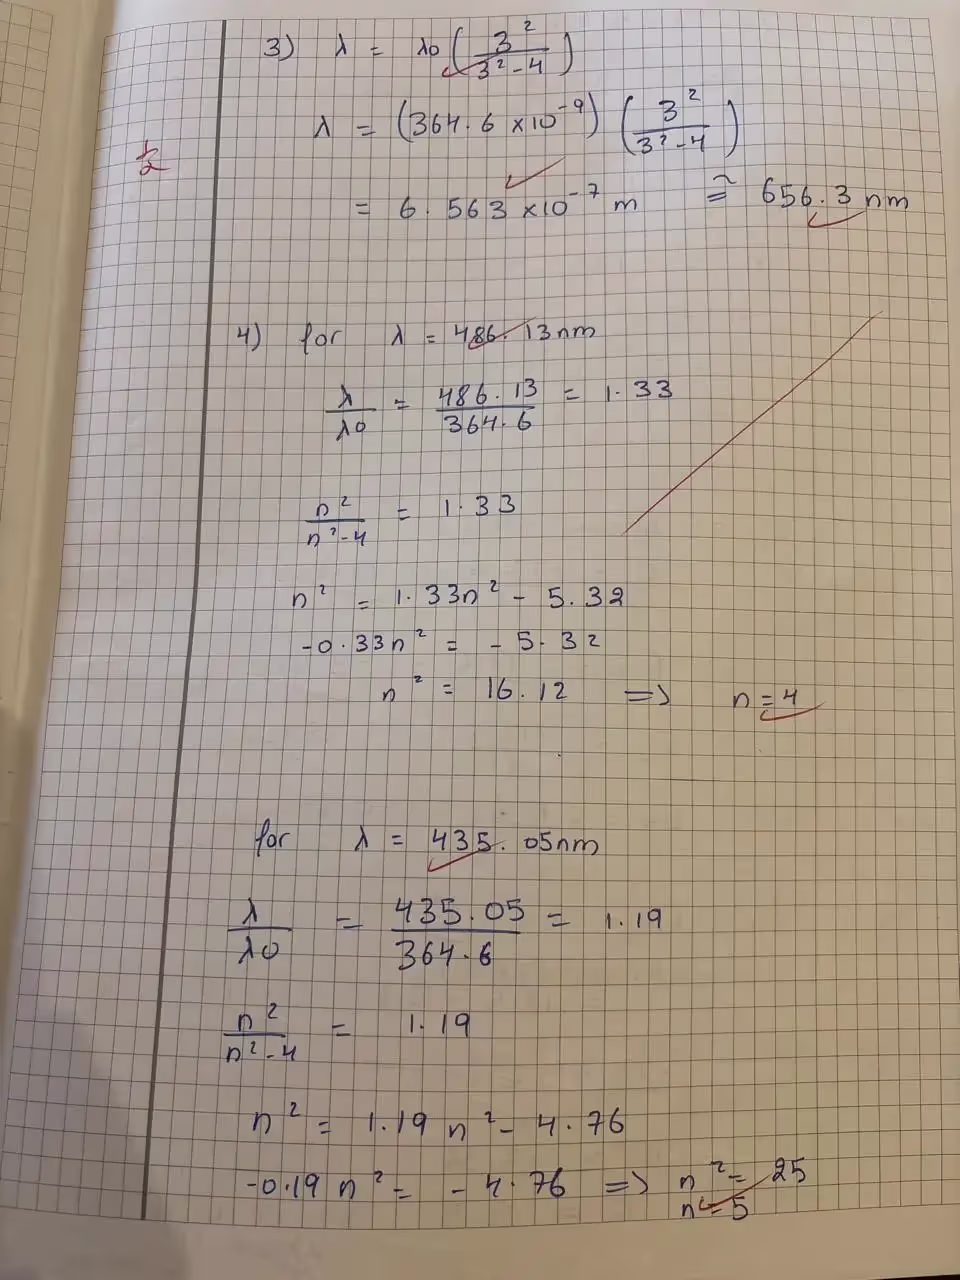 3) λ = λ0 (3²/(3²-4))
λ = (364.6 ×10⁻⁹) (3²/(3²-4))
½
= 6.563 ×10⁻⁷ m ≅ 656.3 nm
4) for λ = 486.13nm
λ/λ0 = 486.13/364.6 = 1.33
n²/(n²-4) = 1.33
n² = 1.33n² - 5.32
-0.33n² = - 5.32
n² = 16.12 => n = 4
for λ = 435.05nm
λ/λ0 = 435.05/364.6 = 1.19
n²/(n²-4) = 1.19
n² = 1.19 n² - 4.76
-0.19 n² = - 4.76 => n² = 25
n = 5